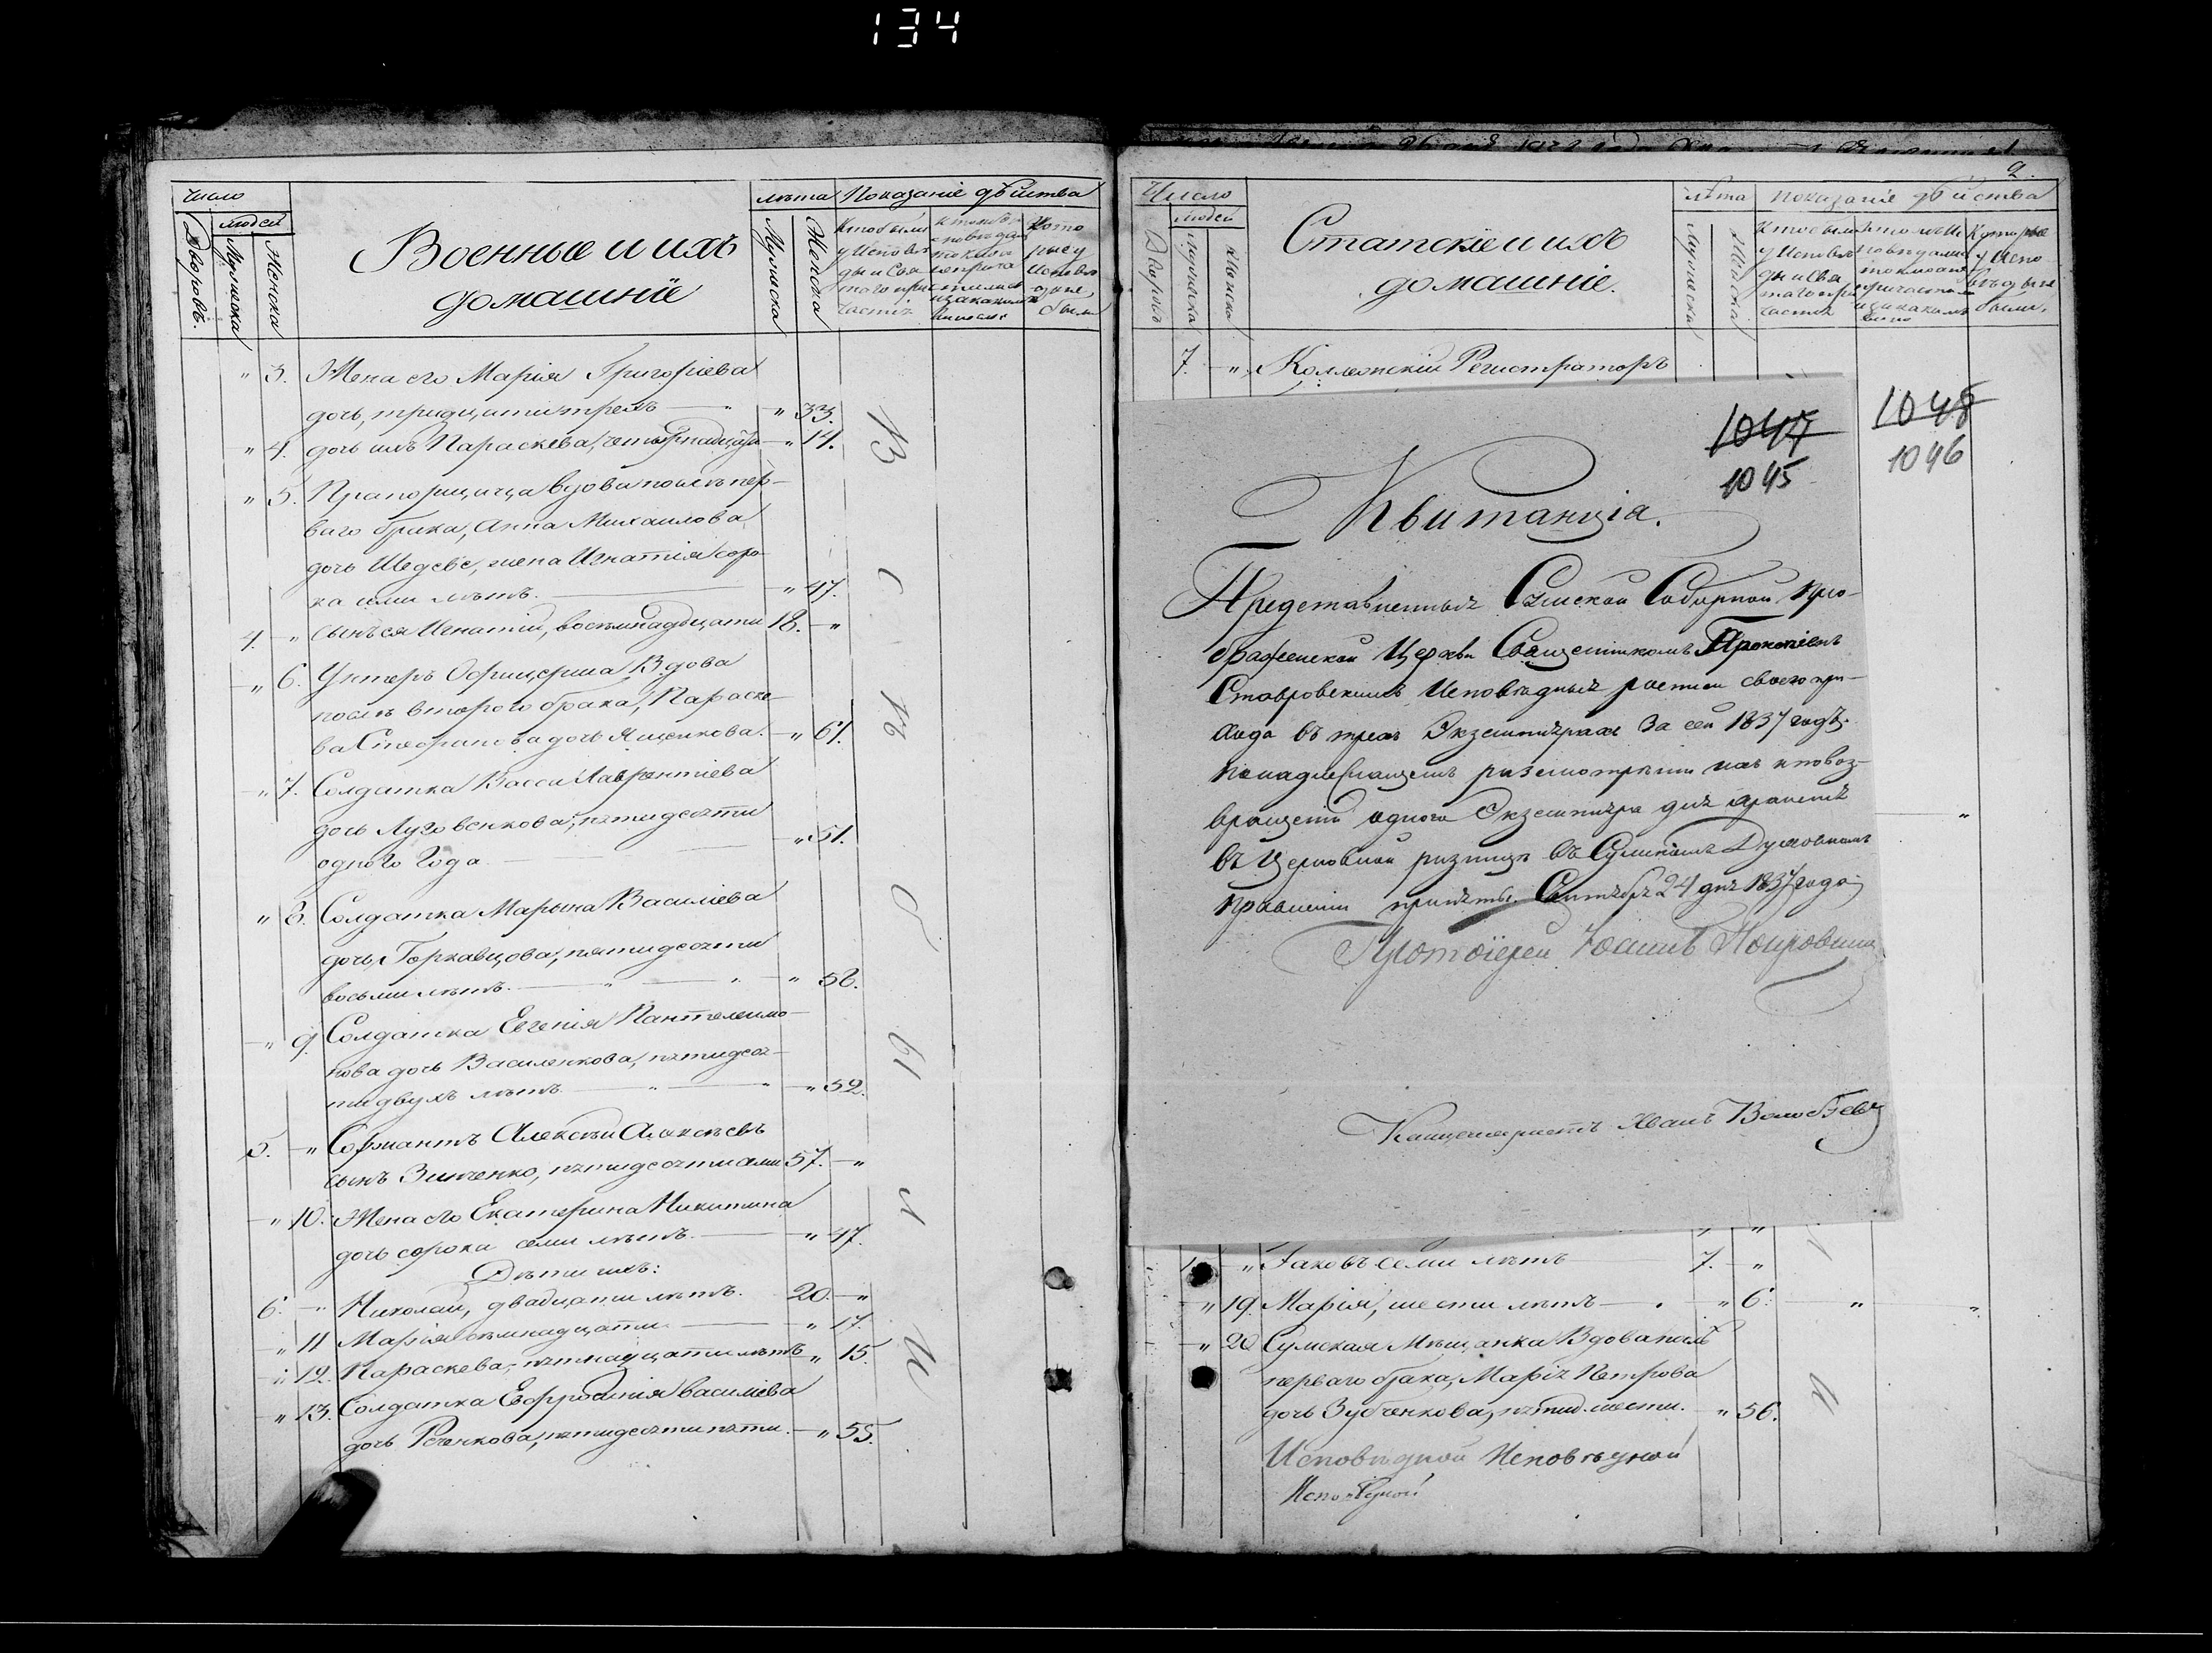 134
Число
людей
Дворовъ.
Мужеска
Женска
Военные и ихъ
домашніе
лѣта
Мужеска
Женска
Показаніе дѣйства
Кто были
у Исповѣ
ди и Свя
таго при
частія
Кото
рые у
Исповѣ
ди не
были
" 3. Жена его Марія Григоріева
дочь, тридцати трехъ — " 33.
" 4. дочь ихъ Параскева, четырнадцати — " 14.
" 5. Прапорщица вдова послѣ пер-
ваго брака, Анна Михаилова
дочь жена Игнатія соро-
ка семи лѣтъ. — " 47.
4. — " сынъ ея Игнатій, восемнадцати 18. — "
— " 6. Унтеръ Офицерша Вдова
послѣ втораго брака, Параске-
ва Стефанова дочь Яценкова. — " 61.
— " 7. Солдатка Васса Лаврентіева
дочь Луговенкова, пятидесяти
одного года — " 51.
" 8. Солдатка Марѳа Василіева
дочь Горкавцова, пятидесяти
восьми лѣтъ. — " 58.
— " 9. Солдатка Евгенія Пантелеимо-
нова дочь Василенкова, пятидеся-
ти двухъ лѣтъ — " 52.
5. — " Сержантъ Алексѣй Алексѣевъ
сынъ Зинченко, пятидесяти семи 57. — "
— " 10. Жена его Екатерина Никитина
дочь сорока семи лѣтъ. — " 47.
Дѣти ихъ:
6. — " Николай, двадцати лѣтъ. 20. — "
— " 11 Марія семнадцати — " 17.
— " 12. Параскева, пятнадцати лѣтъ " 15.
" 13. Солдатка Евфросинія Василіева
дочь Реченкова, пятидесяти пяти. — " 55.
2.
Число
людей
Дворовъ
Мужеска
Женска
Статскіе и ихъ
домашніе.
лѣта
Мужеска
Женска
Показаніе дѣйства
Кто были
у Исповѣ
ди и Свя
таго при
частія
Которые
у Испо
вѣди не
были.
7. — " Коллежскій Регистраторъ
1047
1045
1048
1046
Квитанція.
Представленныя Сумской Соборной Прео-
браженской Церкви Священникомъ Прокопіемъ
Ставровскимъ Исповѣдныя росписи своего при-
хода въ трехъ Экземплярахъ За сей 1837 годъ.
По надлежащемъ разсмотрѣніи ихъ и по воз-
вращеніи одного Экземпляра для храненія
въ Церковной ризницѣ въ Сумскомъ Духовномъ
Правленіи приняты. Сентября 24 дня 1837 года
Протоіерей Іоаннъ
Канцеляристъ Иванъ
— " Іаковъ семи лѣтъ 7. — "
— " 19. Марія, шести лѣтъ — " 6. "
— " 20 Сумская Мѣщанка Вдова послѣ
перваго брака, Марія Петрова
дочь Зубченкова, пятид. шести. — " 56.
Исповѣдной Исповѣдной
Исповѣдной